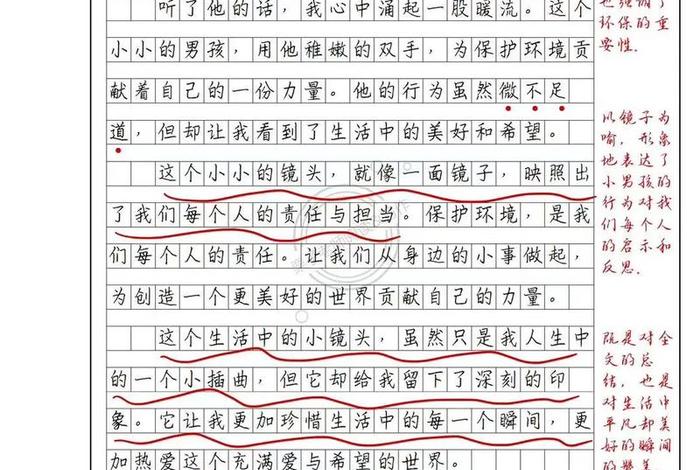 听了他的话，我心中涌起一股暖流。这个
小小的男孩，用他稚嫩的双手，为保护环境贡
献着自己的一份力量。他的行为虽然微不足
道，但却让我看到了生活中的美好和希望。
这个小小的镜头，就像一面镜子，映照出
了我们每个人的责任与担当。保护环境，是我
们每个人的责任。让我们从身边的小事做起，
为创造一个更美好的世界贡献自己的力量。
这个生活中的小镜头，虽然只是我人生中
的一个小插曲，但它却给我留下了深刻的印
象。它让我更加珍惜生活中的每一个瞬间，更
加热爱这个充满爱与希望的世界。
环保的重
要性.
以镜子为
喻，形象
地表达了
小男孩的
行为对我
们每个人
的启示和
反思.
既是对全
文的总
结，也是
对生活中
平凡却美
好的瞬间